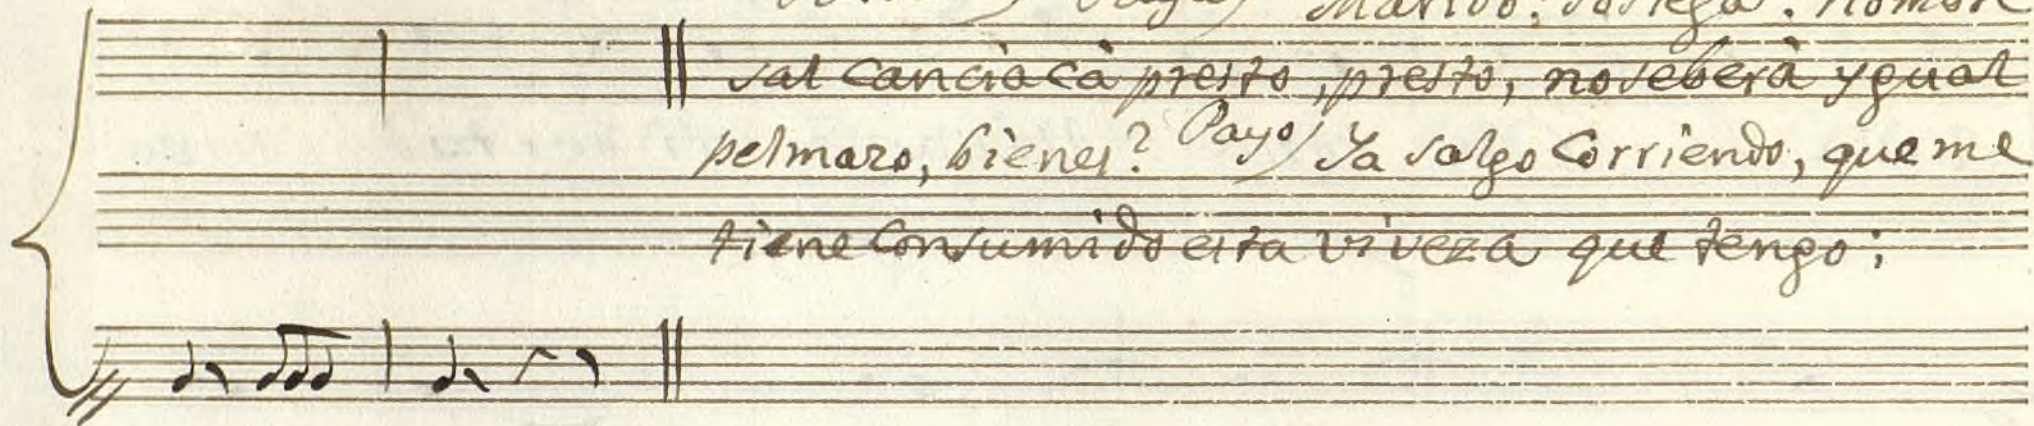 Marido, sosiega. hombre
sal Canciacà presto, presto, noseberà ygual
pelmazo, bienes? Payo) Ya salgo Corriendo, que me
tiene Consumido esta viveza que tengo;